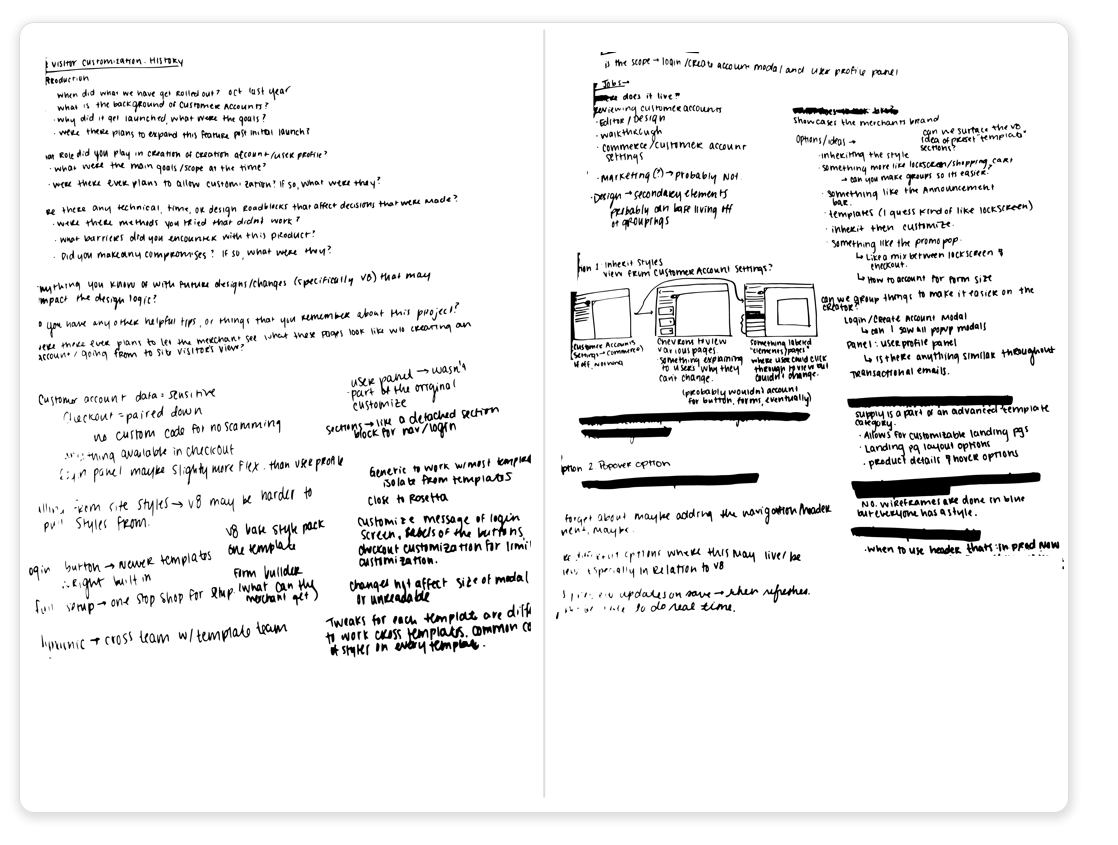 Visitor Customization - History
Production
When did what we have get rolled out? Oct last year
What is the background of Customer Accounts?
· Why did it get launched, what were the goals?
· Were there plans to expand this feature post initial launch?
Role did you play in creation of creation account/user profile?
· What were the main goals/scope at the time?
· Were there ever plans to allow customization? If so, what were they?
there any technical, time, or design roadblocks that affect decisions that were made?
· Were there methods you tried that didnt work?
· What barriers did you encounter with this product?
· Did you make any compromises? If so, what were they?
you know of with future designs/changes (specifically V8) that may
impact the design logic?
you have any other helpful tips, or things that you remember about this project?
there ever plans to let the merchant see what these pages look like w/o creating an
account/going from to site visitor's view?
Customer account data = sensitive
Checkout = paired down
no custom code for no scamming
available in checkout
panel maybe slightly more flex. than user profile
from site styles → V8 may be harder to
pull styles from.
button → newer templates
right built in
setup → one stop shop for
→ cross team w/ template team
V8 base style pack
one template
Form builder
(what can the
merchant get)
user panel → wasn't
part of the original
customize
sections → like a detached section
block for nav/login
Generic to work w/ most
isolate from templates
close to Rosetta
Customize message of login
screen, labels of the buttons
checkout customization for
customization.
changes not affect size of modal
or unreadable
Tweaks for each template are
to work cross templates. common
of styles on every template.
is the scope → login/create account modal and user profile panel
Jobs →
does it live?
Reviewing customer accounts
· Editor/Design
· Walkthrough
· Commerce/customer account
settings
· Marketing(?) → probably not
· Design → secondary elements
probably can base living off
of groupings
Showcases the merchants brand
Options/ideas →
can we surface the V8
idea of preset "template"
sections?
· inheriting the style
· something more like lockscreen/shopping cart
→ can you make groups so its easier?
· something like the Announcement
bar.
· templates (I guess kind of like lockscreen)
· inherit then customize.
· something like the promo pop.
↳ Like a mix between lockscreen &
checkout.
↳ How to account for form size
can we group things to make it easier on the
creator?
Login/Create Account Modal
↳ can I saw all popup modals
Panel: user profile panel
↳ is there anything similar throughout
Transactional emails.
1 Inherit Styles
View from Customer Account Settings?
Customer Accounts
Settings → Commerce)
If off, nothing
Chevrons to view
various pages.
something explaining
to users "why they
cant change.
something labeled
"elements/pages"
where user could click
through to view but
couldn't change.
(probably wouldn't account
for button, forms, eventually)
2 Popover option
forget about maybe adding the navigation/header
maybe.
options where this may live/be
especially in relation to V8
updates on save → when refreshes.
to do real time.
supply is a part of an advanced template
category.
· Allows for customizable landing pgs
· Landing pg layout options
· product details & hover options
No. wireframes are done in blue
but everyone has a style.
· when to use header thats in prod now